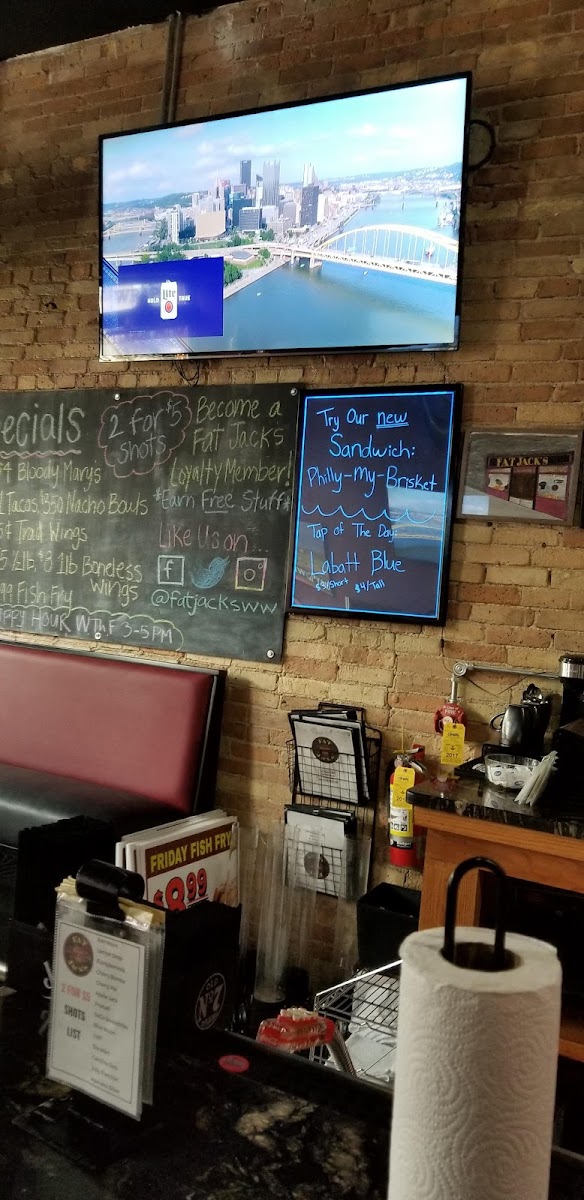 HOLD Lite TRUE
ecials
2 for $5
shots
Become a
Fat Jack's
Loyalty Member!
*Earn Free Stuff*
4 Bloody Marys
Tacos, $350 Nacho Bowls
Trad Wings
5 1/2 lb, $8 1lb Boneless
Wings
99 Fish Fry
HAPPY HOUR W TH F 3-5PM
Like Us on...
f
@fatjacksww
Try Our new
Sandwich:
Philly-My-Brisket
Tap of The Day:
Labatt Blue
$3/Short $4/Tall
FAT JACK'S
2017
FRIDAY FISH FRY
$8.99
2 FOR $5
SHOTS
LIST
No 7